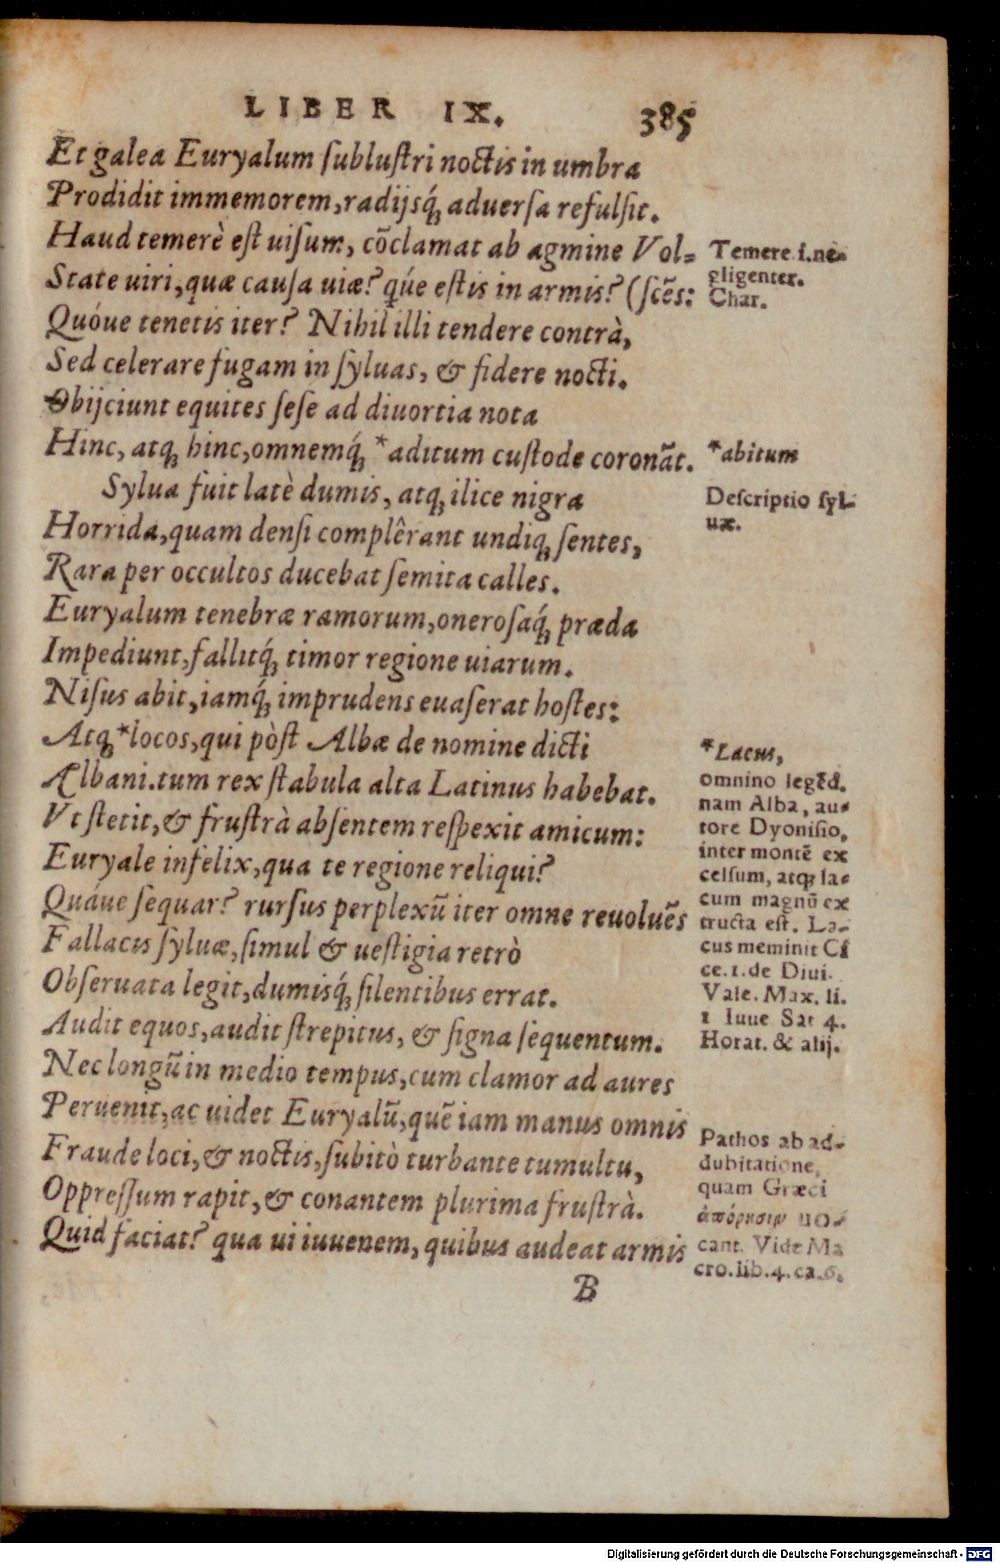 LIBER IX. 385
Et galea Euryalum subluſtri noctis in umbra
Prodidit immemorem, radijsq́ꝫ aduerſa refulſit.
Haud temerè eſt uiſum, cōclamat ab agmine Vol=
State uiri, quæ cauſa uiæ? qúe eſtis in armis? (ſcēs:
Quóue tenetis iter? Nihil illi tendere contrà,
Sed celerare fugam in ſyluas, & fidere nocti.
Obijciunt equites ſeſe ad diuortia nota
Hinc, atqꝫ hinc, omnemq́ꝫ *aditum cuſtode coronāt.
Sylua fuit latè dumis, atqꝫ ilice nigra
Horrida, quam denſi complêrant undiqꝫ ſentes,
Rara per occultos ducebat ſemita calles.
Euryalum tenebræ ramorum, oneroſaq́ꝫ præda
Impediunt, fallitq́ꝫ timor regione uiarum.
Niſus abit, iamq́ꝫ imprudens euaſerat hoſtes:
Atqꝫ *locos, qui pòſt Albæ de nomine dicti
Albani. tum rex ſtabula alta Latinus habebat.
Vt ſtetit, & fruſtrà abſentem reſpexit amicum:
Euryale infelix, qua te regione reliqui?
Quáue ſequar? rurſus perplexū iter omne reuoluēs
Fallacis ſyluæ, ſimul & ueſtigia retrò
Obſeruata legit, dumisq́ꝫ ſilentibus errat.
Audit equos, audit ſtrepitus, & ſigna ſequentum.
Nec longū in medio tempus, cum clamor ad aures
Peruenit, ac uidet Euryalū, quē iam manus omnis
Fraude loci, & noctis, ſubitò turbante tumultu,
Oppreſſum rapit, & conantem plurima fruſtrà.
Quid faciat? qua ui iuuenem, quibus audeat armis
B
Temere i. ne=
gligenter.
Char.
*abitum
Deſcriptio ſyl-
uæ.
*Lacus,
omnino legēd.
nam Alba, au=
tore Dyoniſio,
inter montē ex
celſum, atqꝫ la=
cum magnū ex
tructa eſt. La-
cus meminit Ci
ce. 1. de Diui.
Vale. Max. li.
1 Iuue Sat 4.
Horat. & alij.
Pathos ab ad-
dubitatione,
quam Græci
ἀπόρησιν uo-
cant. Vide Ma
cro. lib. 4. ca. 6.
Digitalisierung gefördert durch die Deutsche Forschungsgemeinschaft - DFG